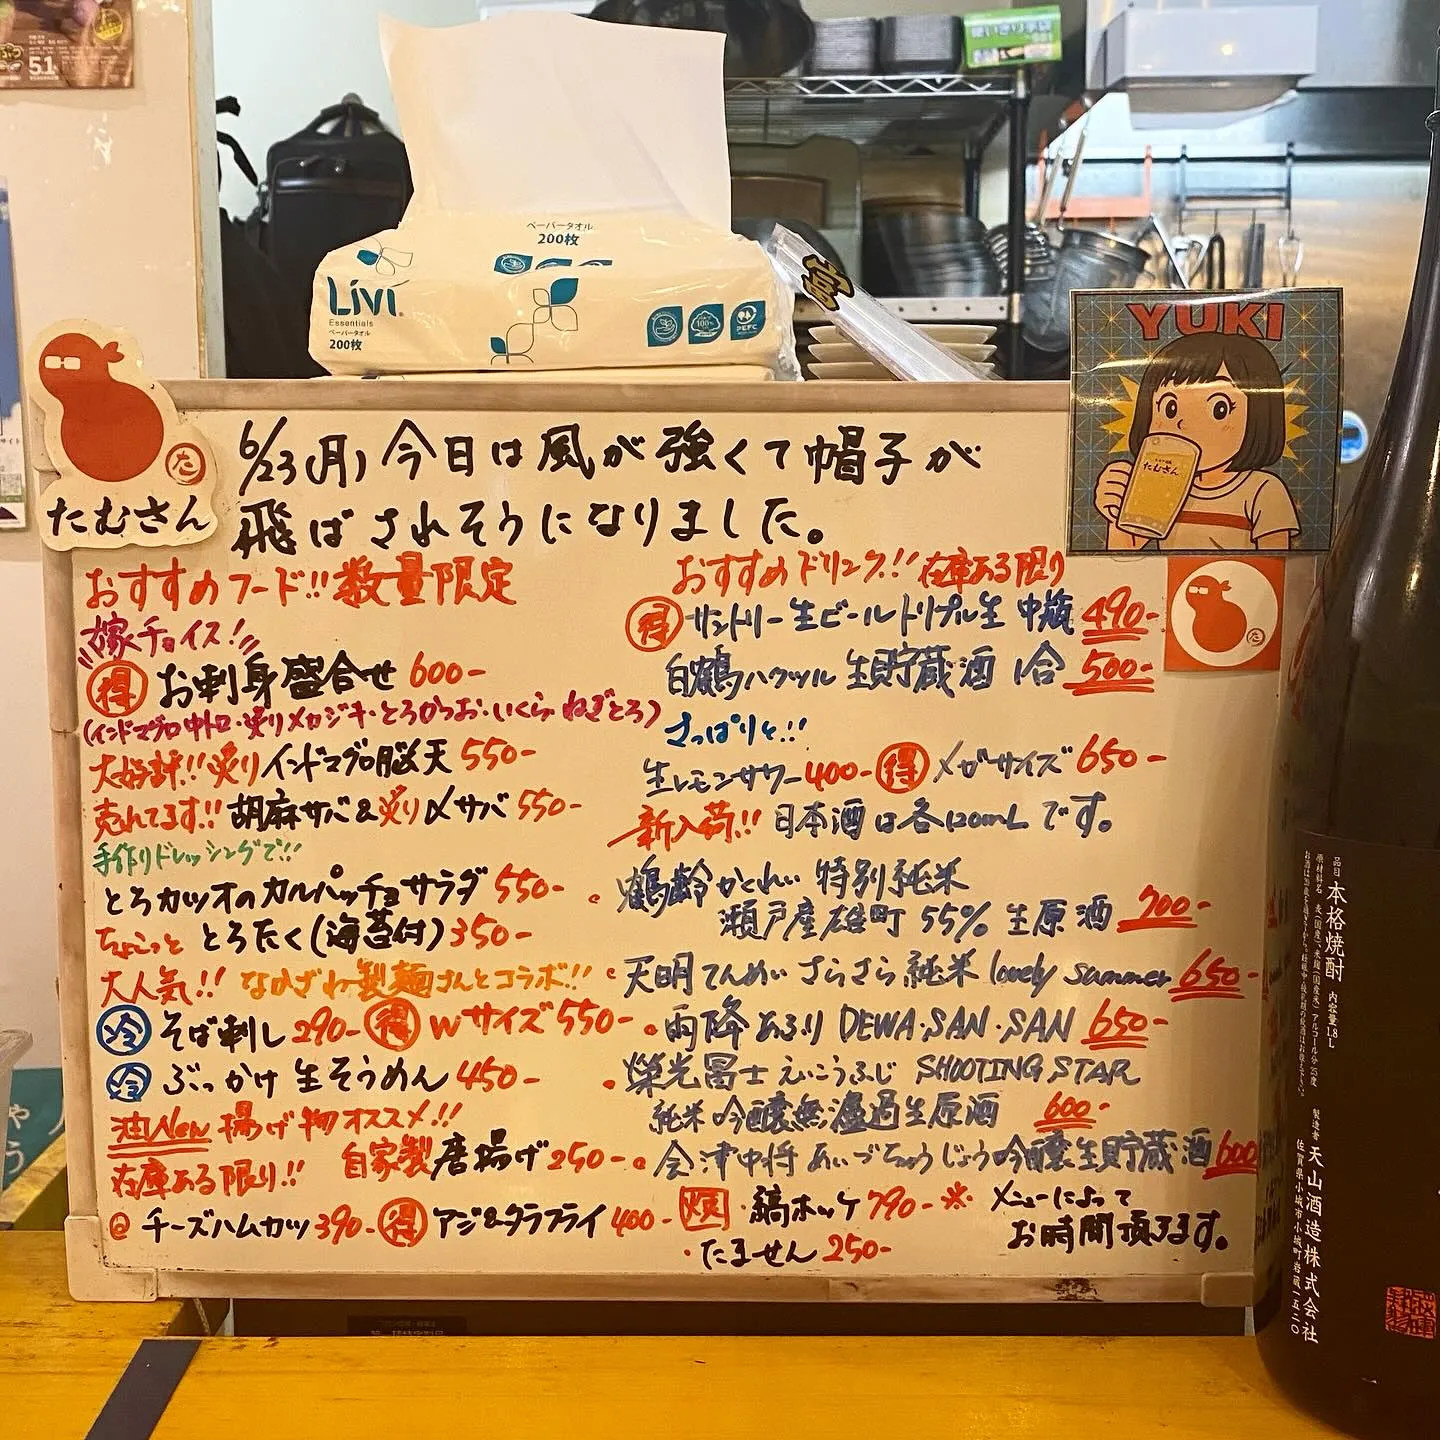 51
ペーパータオル
200枚
Livi
Essentials
ペーパータオル
200枚
PEFC
YUKI
たむさん
た
たむさん
6/23(月) 今日は風が強くて帽子が
飛ばされそうになりました。
おすすめフード!!数量限定
嫁チョイス!
得 お刺身盛合せ 600-
(インドマグロ中トロ・炙りメカジキ・とろかつお・いくら・ねぎとろ)
大好評!!炙りインドマグロ脳天 550-
売れてます!! 胡麻サバ&炙り〆サバ 550-
手作りドレッシングで!!
とろカツオのカルパッチョサラダ 550-
ちょこっと とろたく(海苔付) 350-
大人気!! なかざわ製麺さんとコラボ!!
冷 そば刺し 290- 得 Wサイズ 550-
冷 ぶっかけ生そうめん 450-
油New 揚げ物オススメ!!
在庫ある限り!! 自家製唐揚げ 250-
チーズハムカツ 390- 得 アジ&タラフライ 400-
おすすめドリンク!! 在庫ある限り
得 サントリー生ビールトリプル生 中瓶 490-
白鶴ハクツル 生貯蔵酒 1合 500-
さっぱりと!!
生レモンサワー 400- 得 メガサイズ 650-
新入荷!! 日本酒は各120mLです。
・鶴齢 かくれい 特別純米
瀬戸産雄町 55% 生原酒 700-
・天明 てんめい さらさら純米 lovely summer 650-
・雨降 あふり DEWA・SAN・SAN 650-
・榮光冨士 えいこうふじ SHOOTING STAR
純米吟醸無濾過生原酒 600-
・会津中将 あいづちゅうじょう 吟醸生貯蔵酒 600
・縞ホッケ 790-
・たません 250-
※メニューによって
お時間頂きます。
た
品目 本格焼酎 内容量1.8L
製造者 天山酒造株式会社
佐賀県小城市小城町岩蔵一五二〇